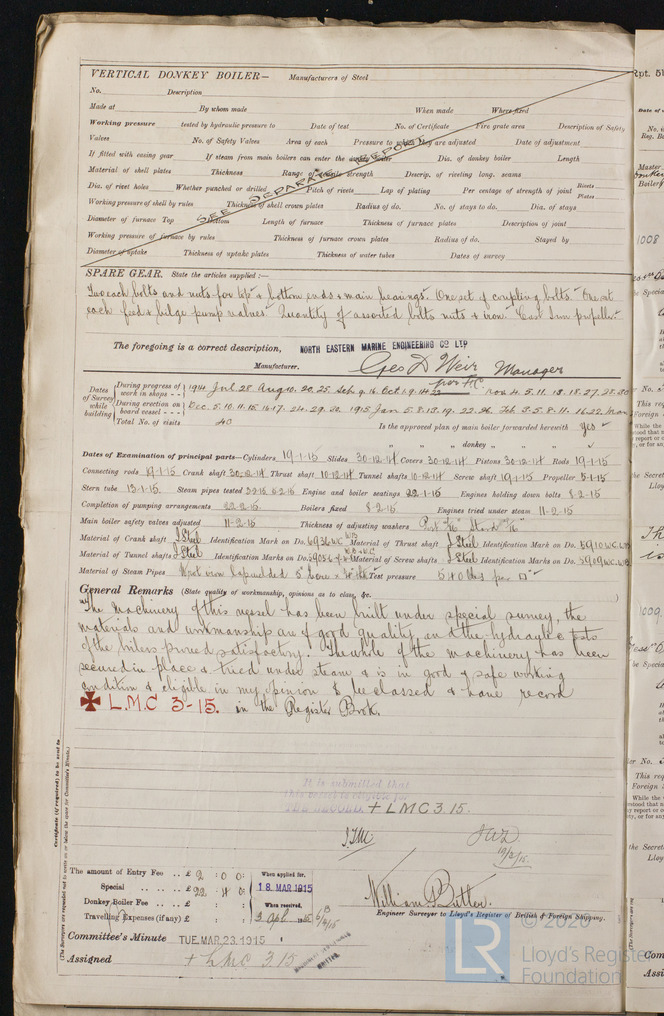 VERTICAL DONKEY BOILER— Manufacturers of Steel
No. Description
Made at By whom made When made Where fixed
Working pressure tested by hydraulic pressure to Date of test No. of Certificate Fire grate area Description of Safety
Valves No. of Safety Valves Area of each Pressure to which they are adjusted Date of adjustment
If fitted with easing gear If steam from main boilers can enter the donkey boiler Dia. of donkey boiler Length
Material of shell plates Thickness Range of tensile strength Descrip. of riveting long. seams
Dia. of rivet holes Whether punched or drilled Pitch of rivets Lap of plating Per centage of strength of joint Rivets Plates
Working pressure of shell by rules Thickness of shell crown plates Radius of do. No. of stays to do. Dia. of stays
Diameter of furnace Top Bottom Length of furnace Thickness of furnace plates Description of joint
Working pressure of furnace by rules Thickness of furnace crown plates Radius of do. Stayed by
Diameter of uptake Thickness of uptake plates Thickness of water tubes Dates of survey
SEE SEPARATE REPORT
SPARE GEAR. State the articles supplied:—
Two each bolts and nuts for top & bottom ends & main bearings. One set of coupling bolts. One set
each feed & bilge pump valves. Quantity of assorted bolts nuts & iron. Cast Iron propeller.
The foregoing is a correct description, NORTH EASTERN MARINE ENGINEERING CO LTD
Manufacturer. Geo D Weir Manager
Dates of Survey while building
During progress of work in shops - - 1914 Jul. 28 Aug 10. 20. 25, Sep 9. 16. Oct 1. 9. 14 Nov 4. 5. 11. 13. 18. 27. 28. 30
During erection on board vessel - - - Dec. 5. 10. 11. 15. 16. 17. 24. 29. 30. 1915 Jan 5. 8. 13. 19. 22. 26. Feb 3. 5. 8. 11. 16. 22. Mar
Total No. of visits 40 Is the approved plan of main boiler forwarded herewith yes
" " " donkey " " "
Dates of Examination of principal parts—Cylinders 19-1-15 Slides 30-12-14 Covers 30-12-14 Pistons 30-12-14 Rods 19-1-15
Connecting rods 19-1-15 Crank shaft 30-12-14 Thrust shaft 10-12-14 Tunnel shafts 10-12-14 Screw shaft 19-1-15 Propeller 5-1-15
Stern tube 13-1-15 Steam pipes tested Engine and boiler seatings 22-1-15 Engines holding down bolts 8-2-15
Completion of pumping arrangements 22-2-15 Boilers fixed 8-2-15 Engines tried under steam 11-2-15
Main boiler safety valves adjusted 11-2-15 Thickness of adjusting washers
Material of Crank shaft I Steel Identification Mark on Do. Material of Thrust shaft I Steel Identification Mark on Do. 5910 W.C.
Material of Tunnel shafts I Steel Identification Marks on Do. Material of Screw shafts I Steel Identification Marks on Do. 5909 W.C.
Material of Steam Pipes Wrot iron lapwelded 5" bore Test pressure 540 lbs per □"
General Remarks (State quality of workmanship, opinions as to class, &c.
The machinery of this vessel has been built under special survey, the
materials and workmanship are of good quality, and the hydraulic tests
of the boilers proved satisfactory. The whole of the machinery has been
secured in place & tried under steam & is in good & safe working
condition & eligible in my opinion to be classed & have record
✠ L.M.C 3-15. in the Register Book.
It is submitted that
this vessel is eligible for
THE RECORD + LMC 3.15.
J.W.D
19/3/15.
Certificate (if required) to be sent to
(The Surveyors are requested not to write on or below the space for Committee's Minute.)
The amount of Entry Fee .. £ 2 : 0 : 0 When applied for.
Special .. .. .. £ 22 : 4 : 0 18 MAR 1915
Donkey Boiler Fee .. .. £ : : When received,
Travelling Expenses (if any) £ : : 3 Apl. 1915
William Butler.
Engineer Surveyor to Lloyd's Register of British & Foreign Shipping.
Committee's Minute TUE. MAR. 23. 1915
Assigned + LMC 3.15
© 2020
LR
Lloyd's Register
Foundation
Rpt. 5b
1008
1009.